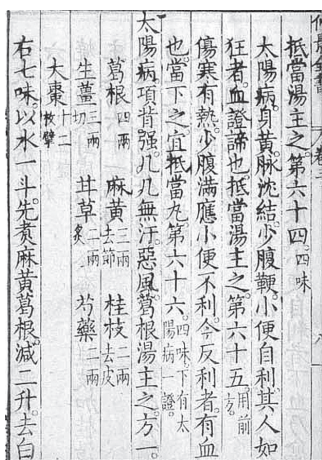 抵當湯主之第六十四 四味
太陽病身黃脉沈結少腹鞕小便自利其人如
狂者血證諦也抵當湯主之第六十五 用前方
傷寒有熱少腹滿應小便不利今反利者有血
也當下之宜抵當丸第六十六 四味下有太陽病一證
太陽病項背强几几無汗惡風葛根湯主之方一
葛根四兩 麻黃三兩去節 桂枝二兩去皮
生薑三兩切 甘草二兩炙 芍藥二兩
大棗十二枚擘
右七味以水一斗先煑麻黃葛根減二升去白